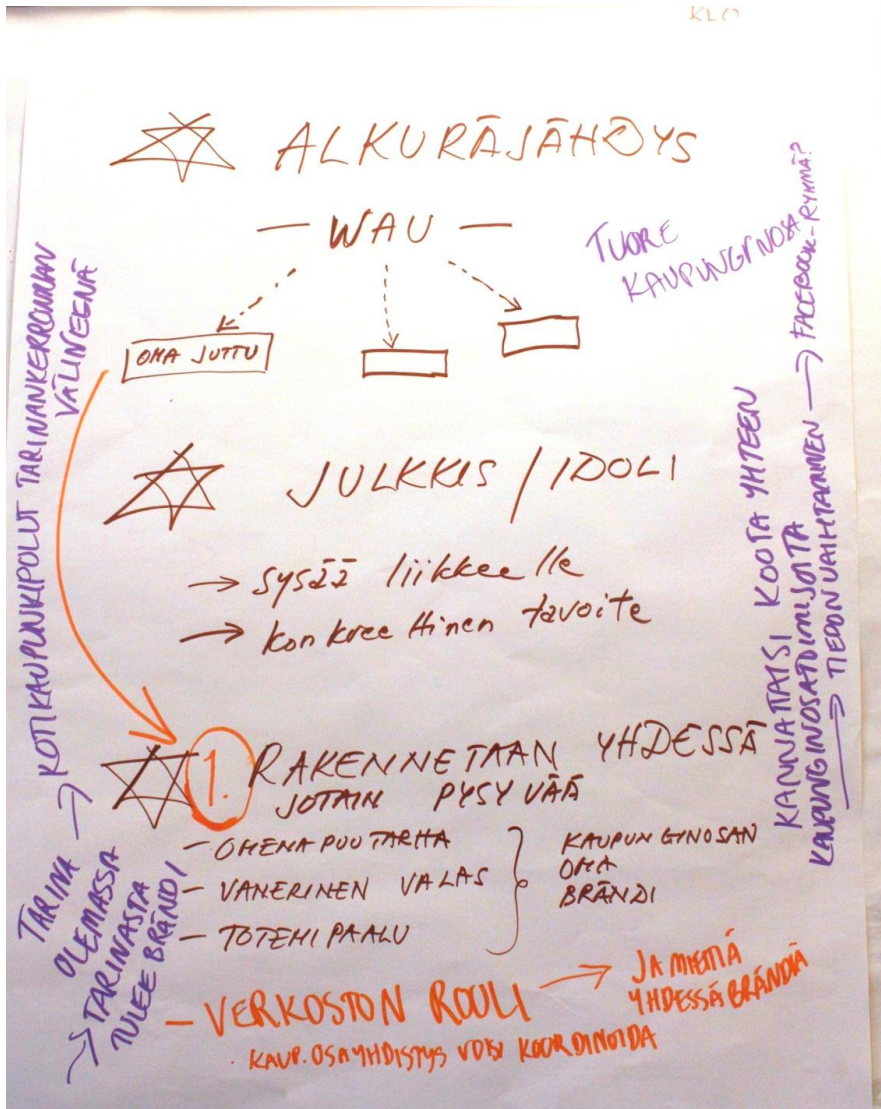 ALKURÄJÄHDYS
— WAU —
TUORE
KAUPUNGINOSA
OMA JUTTU
JULKKIS / IDOLI
→ sysää liikkeelle
→ konkreettinen tavoite
1. RAKENNETAAN YHDESSÄ
JOTAIN PYSYVÄÄ
- OMENAPUUTARHA
- VANERINEN VALAS
- TOTEMIPAALU
KAUPUNGINOSAN
OMA
BRÄNDI
- VERKOSTON ROOLI → JA MIETTIÄ
YHDESSÄ BRÄNDIÄ
· KAUP.OSAYHDISTYS VOISI KOORDINOIDA
TARINA
OLEMASSA
→ TARINASTA
TULEE BRÄNDI
→ KOTIKAUPUNKIPOLUT TARINANKERRONNAN
VÄLINEENÄ
KANNATTAISI KOOTA YHTEEN
KAUPUNGINOSATOIMIJOITA
→ TIEDON VAIHTAMINEN → FACEBOOK-RYHMÄ?